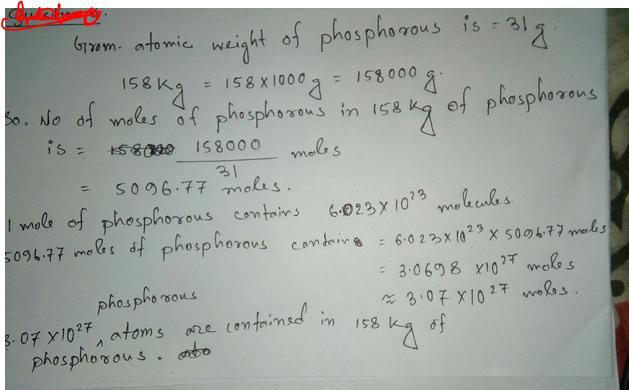 Gram. atomic weight of phosphorous is = 31 g.
158 Kg = 158 X 1000 g = 158000 g.
So. No of moles of phosphorous in 158 kg of phosphorous
is = 158000 / 31 moles
= 5096.77 moles.
1 mole of phosphorous contains 6.023 X 10²³ molecules.
5096.77 moles of phosphorous contains = 6.023 X 10²³ X 5096.77 moles
= 3.0698 X 10²⁷ moles
≈ 3.07 X 10²⁷ moles.
3.07 X 10²⁷ phosphorous atoms are contained in 158 kg of
phosphorous.